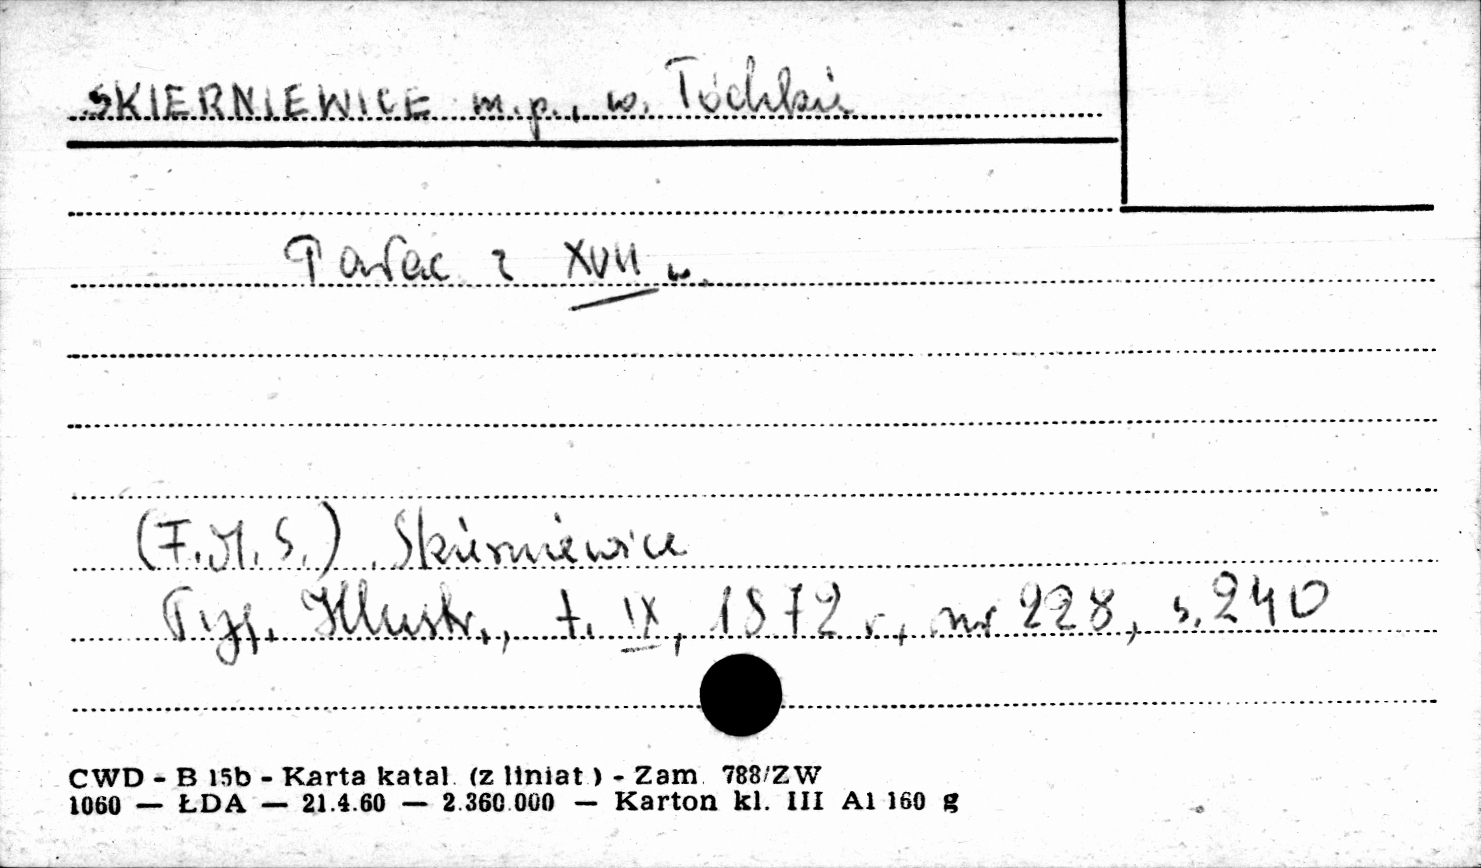 SKIERNIEWICE m.p., w. Łódzkie
Pałac z XVII w.
(F.M.S.) Skierniewice
Tyg. Illustr., t. IX, 1872 r., nr 228, s. 240
CWD - B 15b - Karta katal. (z liniat.) - Zam. 788/ZW
1060 — ŁDA — 21.4.60 — 2.360.000 — Karton kl. III A1 160 g